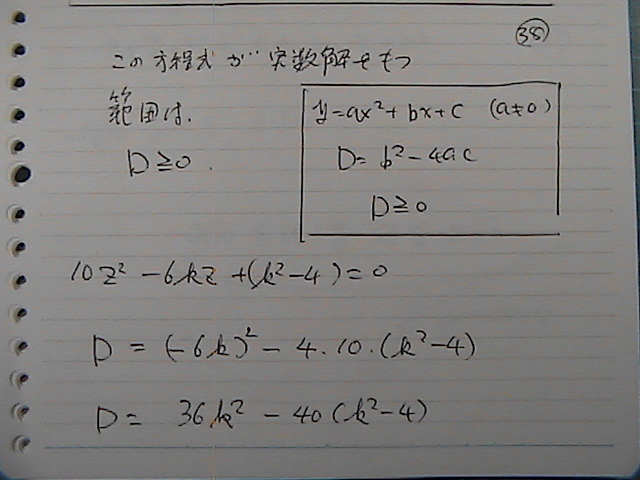 ㊳
この方程式が実数解をもつ
範囲は、
D≧0.
y=ax²+bx+c (a≠0)
D=b²-4ac
D≧0
10z²-6kz+(k²-4)=0
D=(-6k)²-4.10.(k²-4)
D=36k²-40(k²-4)